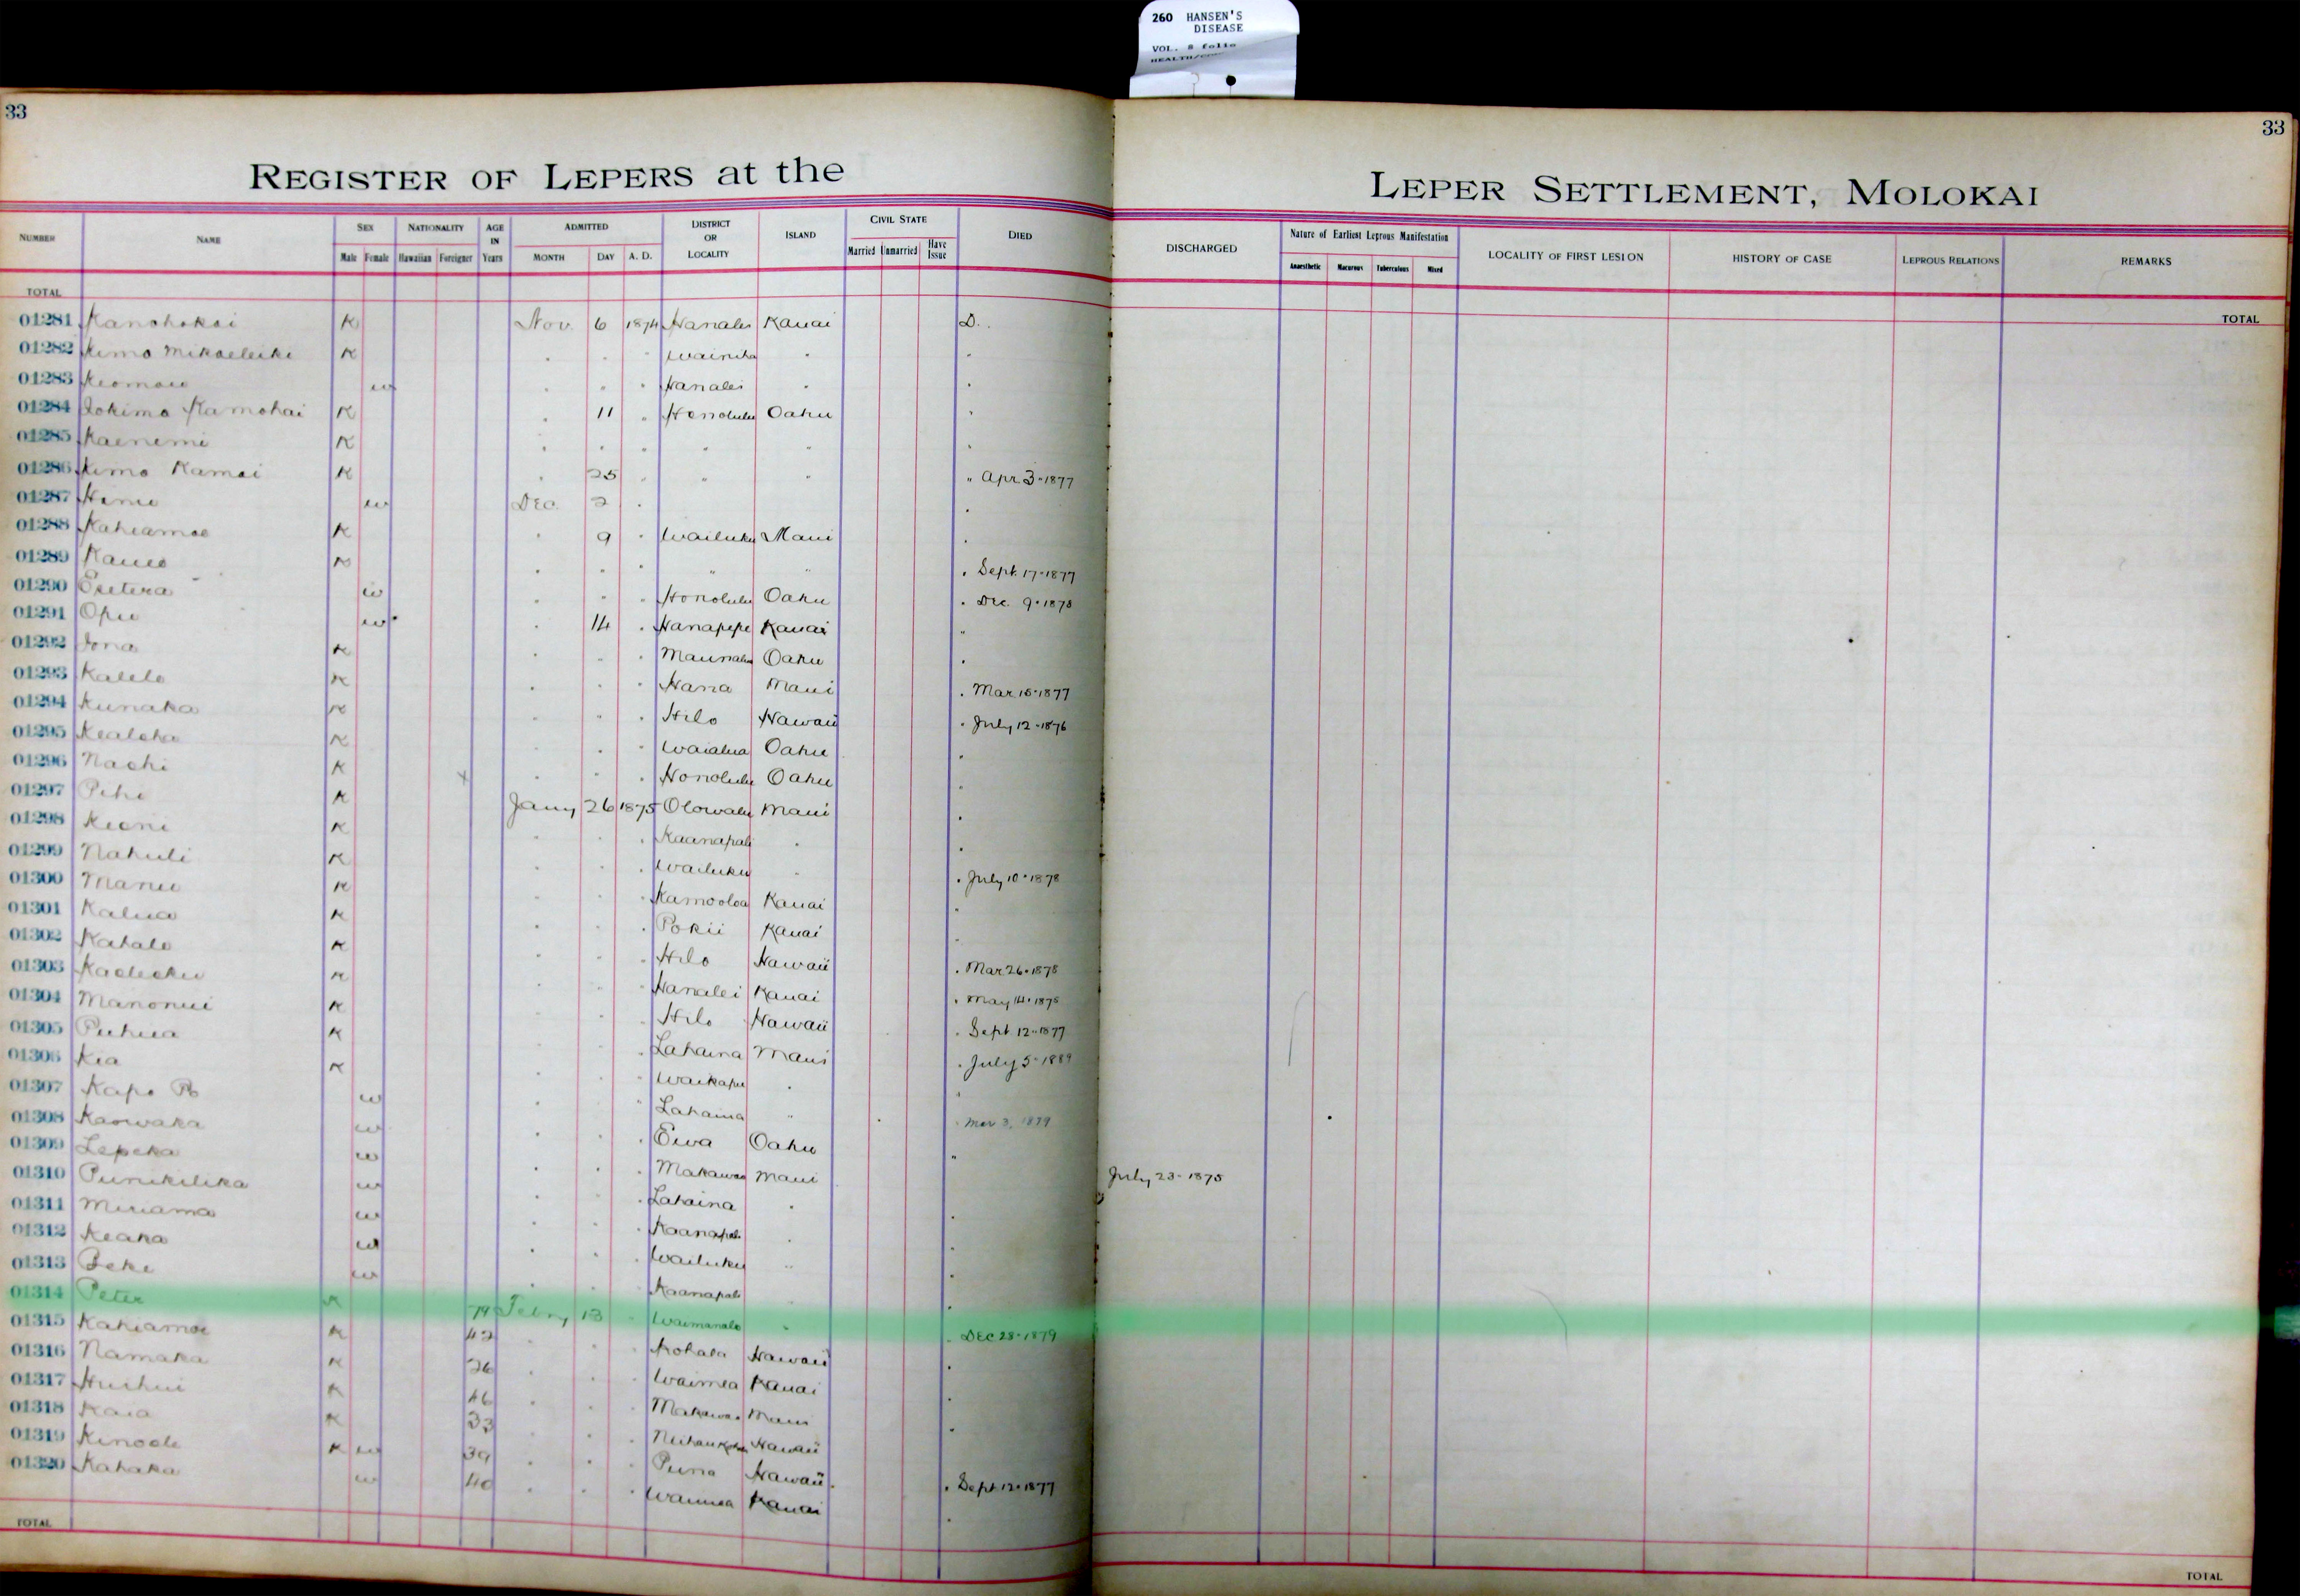 260 HANSEN'S
DISEASE
VOL. 8 folio
33
33
REGISTER OF LEPERS at the
LEPER SETTLEMENT, MOLOKAI
NUMBER NAME SEX Male Female NATIONALITY Hawaiian Foreigner AGE IN Years ADMITTED MONTH DAY A. D. DISTRICT OR LOCALITY ISLAND CIVIL STATE Married Unmarried Have Issue DIED
DISCHARGED Nature of Earliest Leprous Manifestation Anaesthetic Macurous Tuberculous Mixed LOCALITY OF FIRST LESION HISTORY OF CASE LEPROUS RELATIONS REMARKS
TOTAL
TOTAL
01281 Kanohokai K Nov. 6 1874 Hanalei Kauai D.
01282 Kimo Mikaeleike K " " " Wainiha " "
01283 Keomau w " " " Hanalei " "
01284 Iokimo Kamohai K " 11 " Honolulu Oahu "
01285 Kaenemi K " " " " " "
01286 Kimo Kamai K " 25 " " " " Apr 3-1877
01287 w Dec. 2 " "
01288 Kahiamoe K " 9 " Wailuku Maui "
01289 K " " " " " " Sept. 17-1877
01290 w " " " Honolulu Oahu " Dec. 9-1878
01291 Opu w " 14 " Hanapepe Kauai "
01292 Iona K " " " Oahu "
01293 Kalelo K " " " Hana Maui " Mar 15-1877
01294 Kunaka K " " " Hilo Hawaii " July 12-1876
01295 Kealoha K " " " Waialua Oahu "
01296 Naohi K x " " " Honolulu Oahu "
01297 Pihi K Jany 26 1875 Olowalu Maui "
01298 Keoni K " " " Kaanapali " "
01299 Nahuli K " " " Wailuku " " July 10-1878
01300 Manu K " " " Kamooloa Kauai "
01301 Kalua K " " " Pokii Kauai "
01302 Kahalo K " " " Hilo Hawaii " Mar 26-1878
01303 K " " " Hanalei Kauai " May 14-1875
01304 Manonui K " " " Hilo Hawaii " Sept 12-1877
01305 Puhua K " " " Lahaina Maui " July 5-1889
01306 Kea K " " " Waikapu " "
01307 Kapo w " " " Lahaina " " Mar 3, 1879
01308 Kaowaka w " " " Ewa Oahu "
01309 Lepeka w " " " Makawao Maui July 23-1875
01310 Punikilika w " " " Lahaina " "
01311 Miriama w " " " Kaanapali " "
01312 Keaka w " " " Wailuku " "
01313 Beke w " " " Kaanapali " "
01314 Peter K Febry 13 " Waimanalo " " Dec 28-1879
01315 Kahiamoe K 42 " " " Kohala Hawaii "
01316 Namaka K 26 " " " Waimea Kauai "
01317 Huihui K 46 " " " Makawao Maui "
01318 Kaia K 33 " " " Hawaii
01319 Kinoole K w 39 " " " Puna Hawaii " Sept 12-1877
01320 Kahaka w 40 " " " Waimea Kauai "
TOTAL
TOTAL